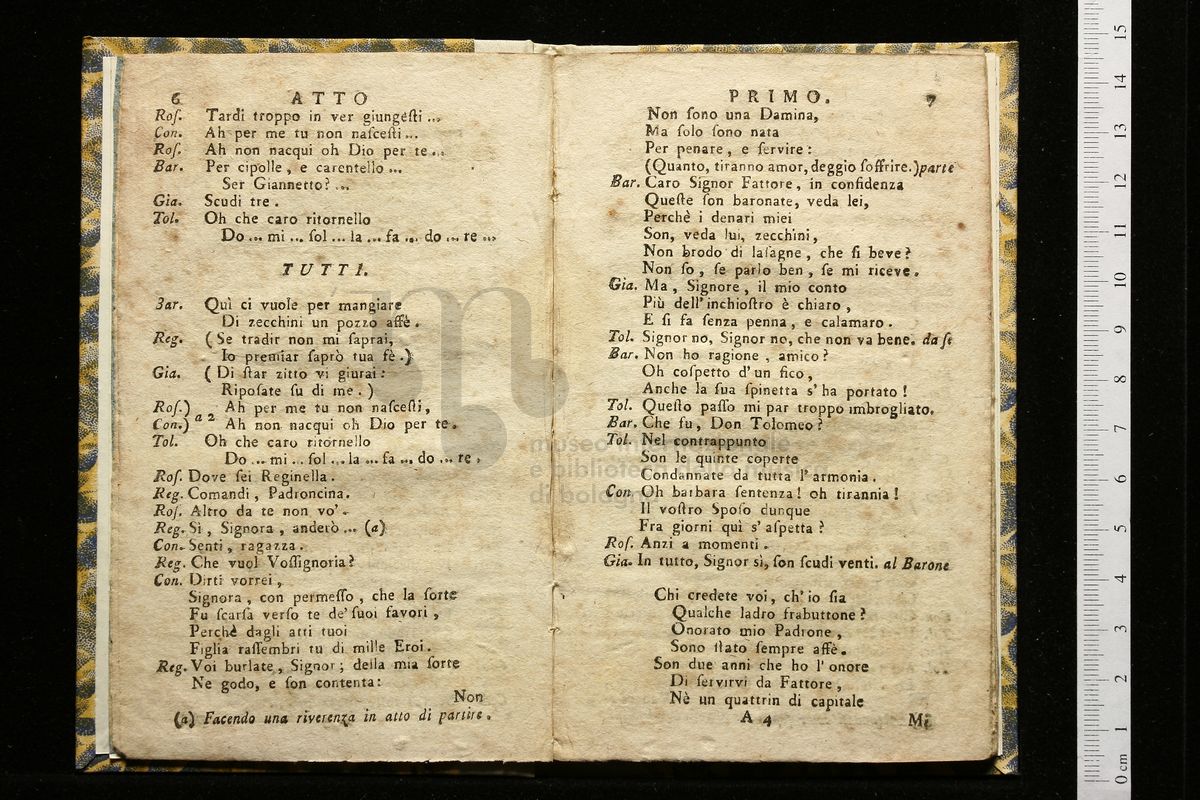 6 ATTO
Roſ. Tardi troppo in ver giungeſti ...
Con. Ah per me tu non naſceſti ...
Roſ. Ah non nacqui oh Dio per te ...
Bar. Per cipolle, e carentello ...
Ser Giannetto? ...
Gia. Scudi tre.
Tol. Oh che caro ritornello
Do ... mi ... ſol ... la ... fa ... do ... re ...
TUTTI.
Bar. Quì ci vuole per mangiare
Di zecchini un pozzo affè.
Reg. (Se tradir non mi ſaprai,
Io premiar ſaprò tua fè.)
Gia. (Di ſtar zitto vi giurai:
Ripoſate ſu di me.)
Roſ.) a 2 Ah per me tu non naſceſti,
Con.) Ah non nacqui oh Dio per te.
Tol. Oh che caro ritornello
Do ... mi ... ſol ... la ... fa ... do ... re,
Roſ. Dove ſei Reginella.
Reg. Comandi, Padroncina.
Roſ. Altro da te non vo'.
Reg. Sì, Signora, anderò ... (a)
Con. Senti, ragazza.
Reg. Che vuol Voſſignoria?
Con. Dirti vorrei,
Signora, con permeſſo, che la ſorte
Fu ſcarſa verſo te de' ſuoi favori,
Perchè dagli atti tuoi
Figlia raſſembri tu di mille Eroi.
Reg. Voi burlate, Signor; della mia ſorte
Ne godo, e ſon contenta:
Non
(a) Facendo una riverenza in atto di partire.
PRIMO. 7
Non ſono una Damina,
Ma ſolo ſono nata
Per penare, e ſervire:
(Quanto, tiranno amor, deggio ſoffrire.) parte
Bar. Caro Signor Fattore, in confidenza
Queſte ſon baronate, veda lei,
Perchè i denari miei
Son, veda lui, zecchini,
Non brodo di laſagne, che ſi beve?
Non ſo, ſe parlo ben, ſe mi riceve.
Gia. Ma, Signore, il mio conto
Più dell'inchioſtro è chiaro,
E ſi fa ſenza penna, e calamaro.
Tol. Signor no, Signor no, che non va bene. da ſe
Bar. Non ho ragione, amico?
Oh coſpetto d'un fico,
Anche la ſua ſpinetta s'ha portato!
Tol. Queſto paſſo mi par troppo imbrogliato.
Bar. Che fu, Don Tolomeo?
Tol. Nel contrappunto
Son le quinte coperte
Condannate da tutta l'armonia.
Con Oh barbara ſentenza! oh tirannia!
Il voſtro Spoſo dunque
Fra giorni quì s'aſpetta?
Roſ. Anzi a momenti.
Gia. In tutto, Signor sì, ſon ſcudi venti. al Barone
Chi credete voi, ch'io ſia
Qualche ladro frabuttone?
Onorato mio Padrone,
Sono ſtato ſempre affè.
Son due anni che ho l'onore
Di ſervirvi da Fattore,
Nè un quattrin di capitale
A 4 Mi
museo
e biblioteca della musica
di bologna
0 cm 1 2 3 4 5 6 7 8 9 10 11 12 13 14 15